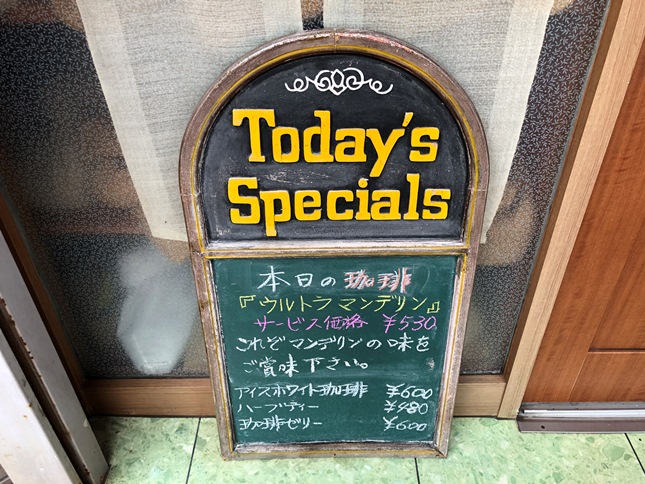 Today's
Specials
本日の珈琲
『ウルトラマンデリン』
サービス価格 ¥530
これぞマンデリンの味を
ご賞味下さい。
アイスホワイト珈琲 ¥600
ハーブティー ¥480
珈琲ゼリー ¥600